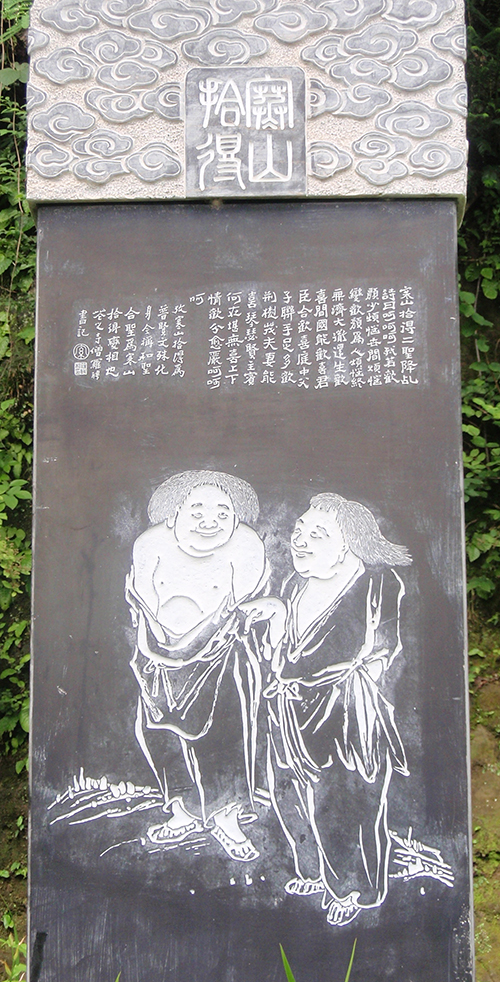 寒山
拾得
寒山拾得二聖降乩
詩曰呵呵呵我若歡
顏少煩惱世間煩惱
變歡顏為人煩惱終
無濟大道還生歡
喜間國能歡喜君
臣合歡喜庭中父
子聯手足多歡
荊樹茂夫妻能
喜琴瑟賢主賓
何在堪無喜上下
情歡分愈嚴呵呵
呵
考寒山拾得為
普賢文殊化
身今稱和聖
合聖為寒山
拾得變相也
寺僧
書記